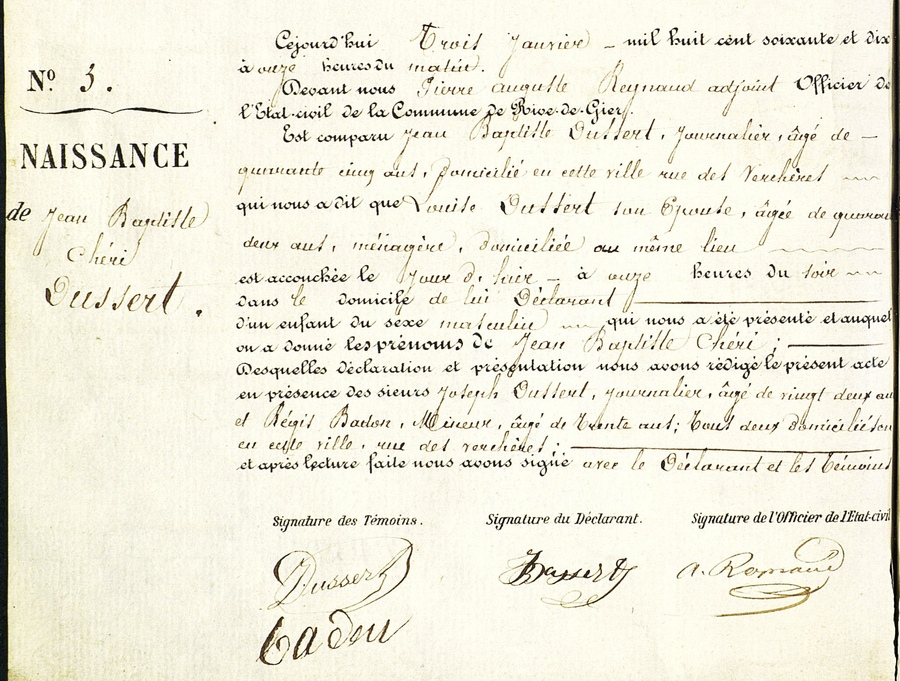 N° 3.
NAISSANCE
de Jean Baptiste
Chéri
Dussert.
Cejourd'hui Trois Janvier _ mil huit cent soixante et dix
à onze heures du matin.
Devant nous Pierre auguste Reynaud adjoint Officier de
l'Etat-civil de la Commune de Rive-de-Gier,
Est comparu Jean Baptiste Dussert, Journalier, âgé de —
quarante cinq ans, Domicilié en cette ville rue des Verchères
qui nous a dit que Louise Dussert son Epouse, âgée de quarante
deux ans, ménagère, domiciliée au même lieu
est accouchée le Jour d'hier — à onze heures du soir
dans le domicile de lui Déclarant
d'un enfant du sexe masculin qui nous a été présenté et auquel
on a donné les prénoms de Jean Baptiste Chéri;
Desquelles déclaration et présentation nous avons rédigé le présent acte
en présence des sieurs Joseph Dussert, Journalier, âgé de vingt deux an
et Régis Badon, Mineur, âgé de Trente ans; Tous deux domiciliés en
en cette ville, rue des verchères;
et après lecture faite nous avons signé avec le Déclarant et les témoins
Signature des Témoins.
Signature du Déclarant.
Signature de l'Officier de l'Etat-civil
Dussert
Dussert
A. Reynaud